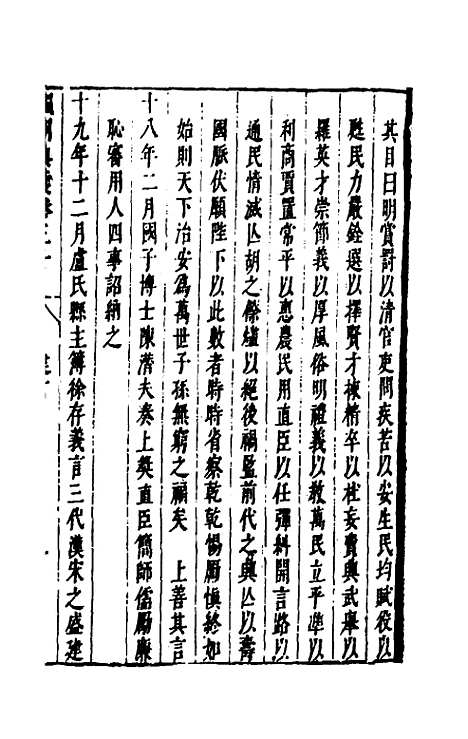 其目曰明賞罰以清官吏問疾苦以安生民均賦役以
甦民力嚴銓選以擇賢才棟精卒以杜妄費典武舉以
羅英才崇節義以厚風俗明禮義以教萬民立平準以
利商賈置常平以惠農民用直臣以任彈糾開言路以
通民情滅亾胡之餘孽以絕後禍監前代之興亾以壽
國脈伏願陛下以此數者時時省察乾乾惕厲慎終如
始則天下治安爲萬世子孫無窮之福矣 上善其言
十八年二月國子博士陳潛夫奏上獎直臣簡師儒勵廉
恥審用人四事詔納之
十九年十二月盧氏縣主簿徐存義言三代漢宋之盛建
卷三十